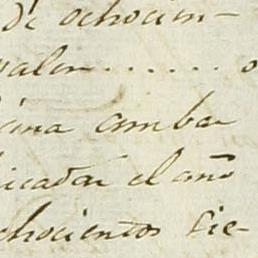 de ochocien-
valen . . . . . . . o
cina ambar
icadas el año
chocientos sie-